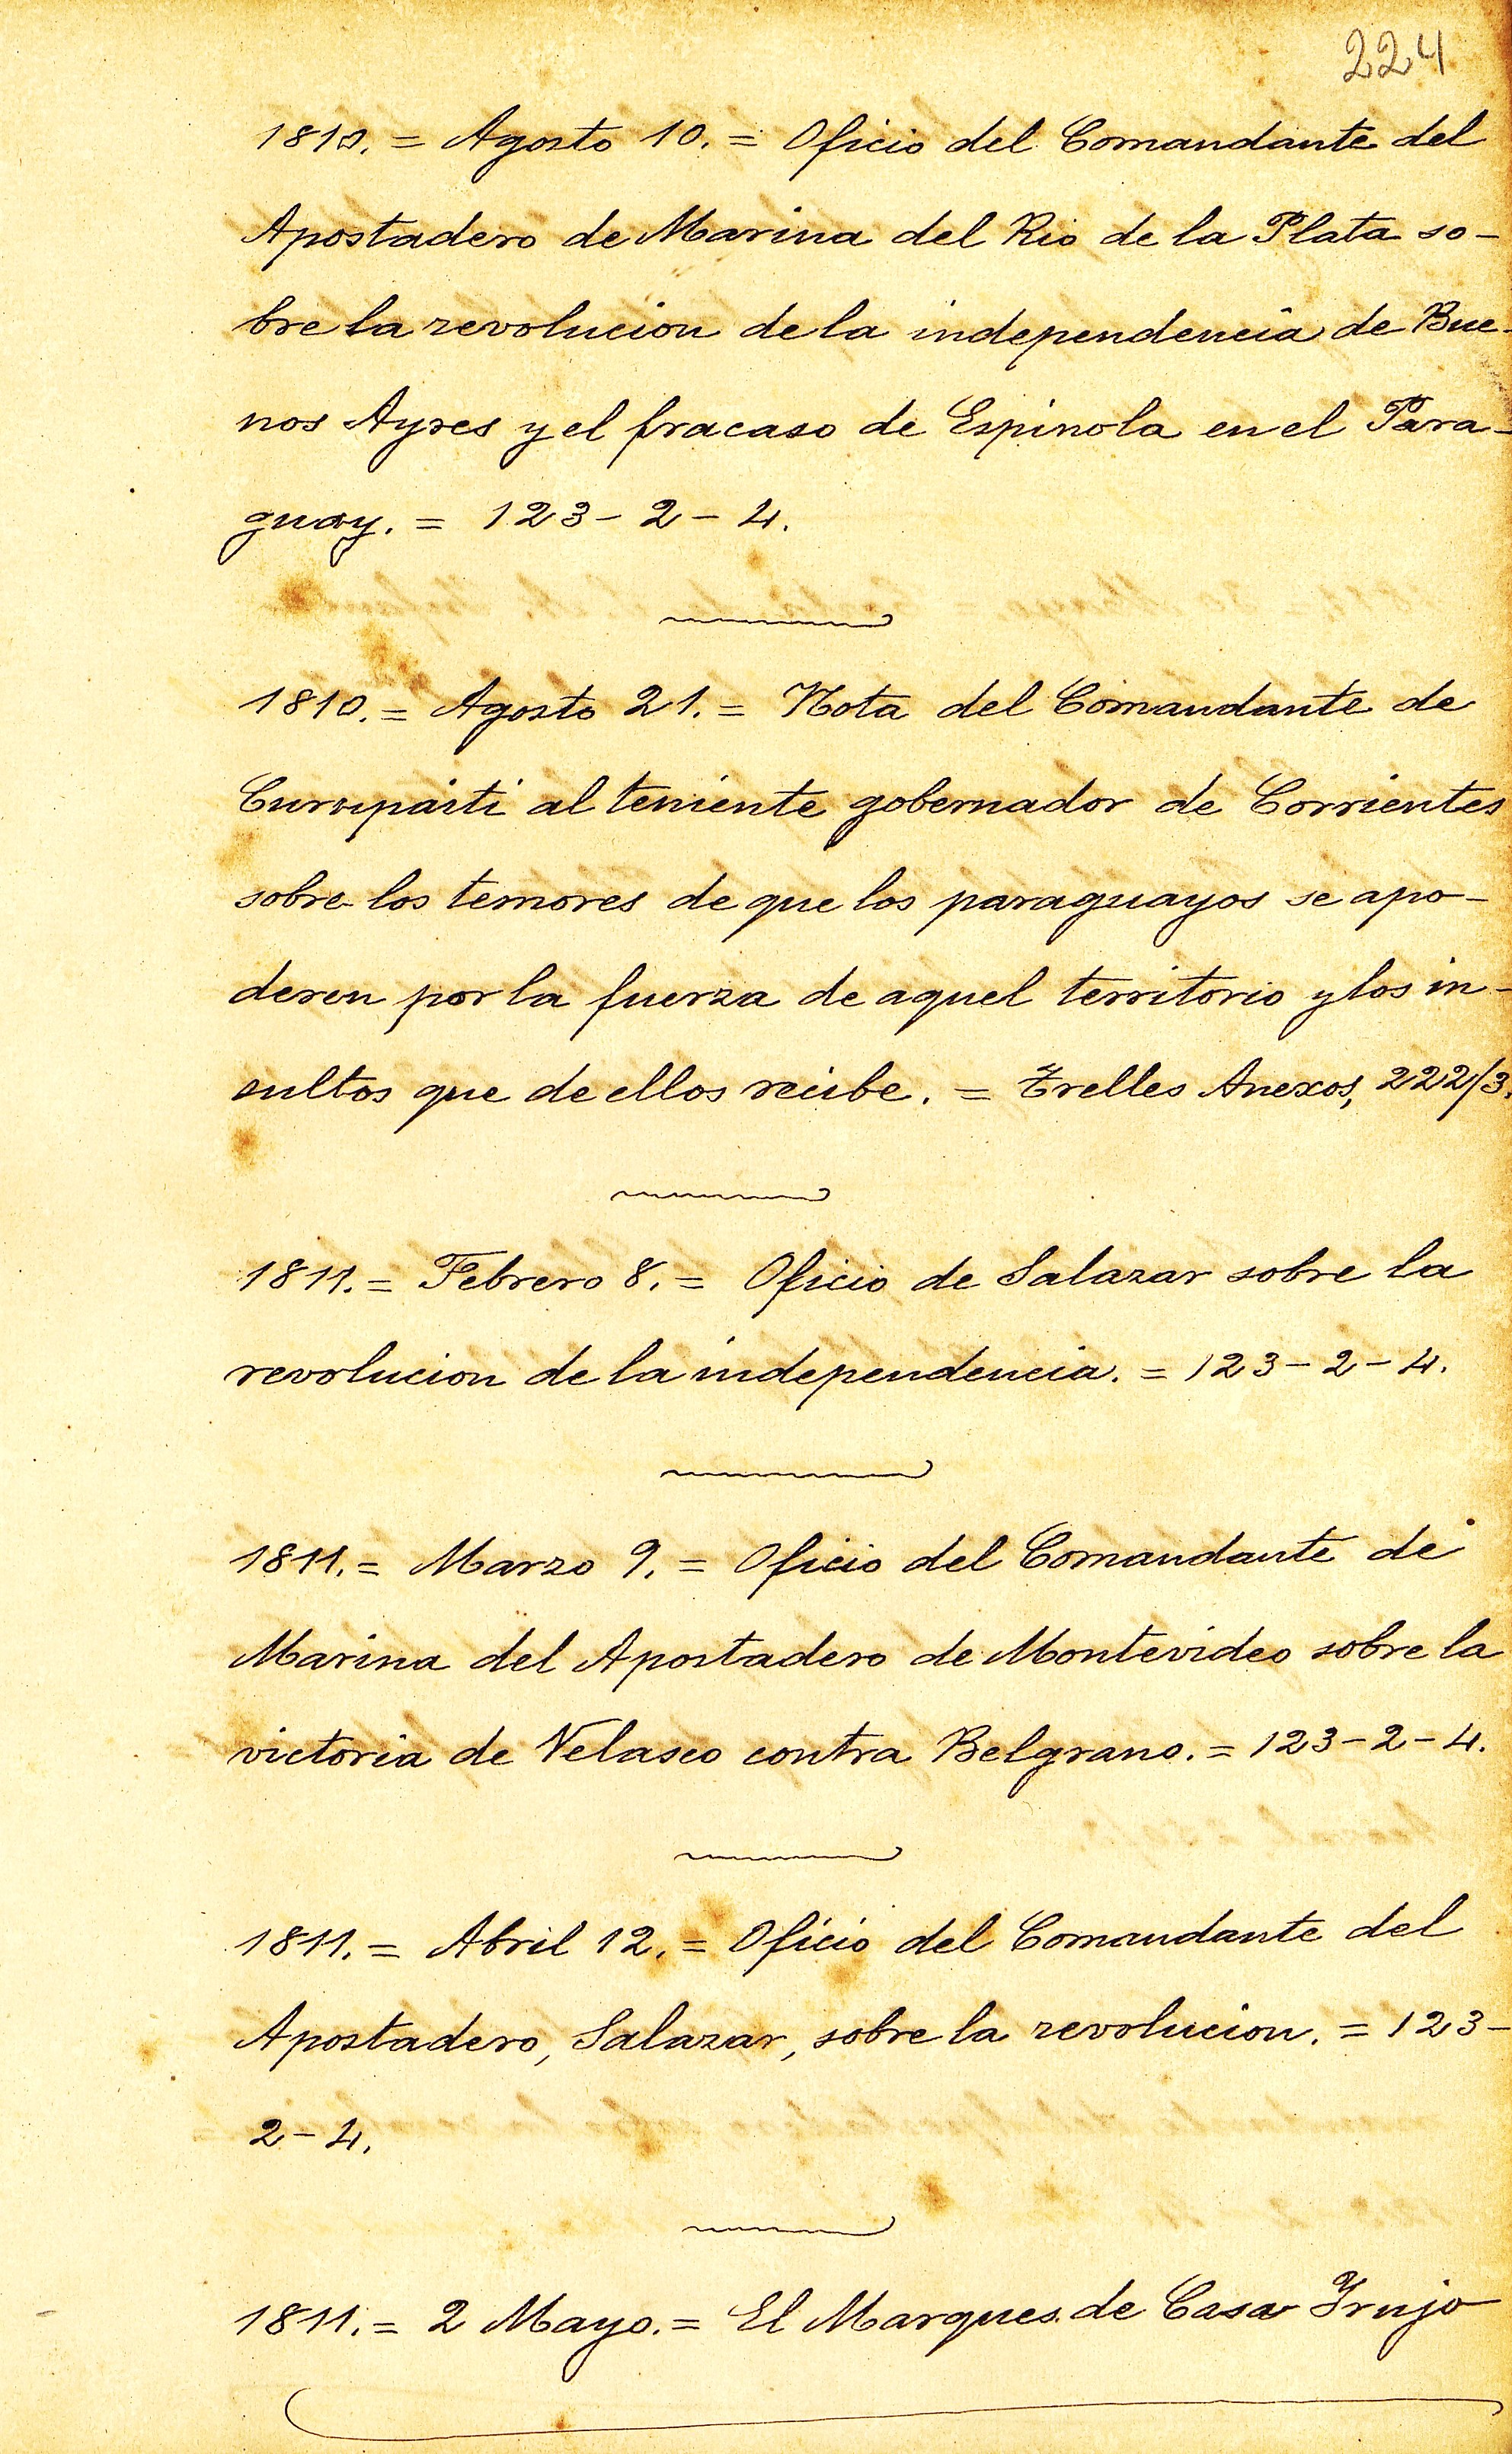 224
1810. = Agosto 10. = Oficio del Comandante del
Apostadero de Marina del Rio de la Plata so-
bre la revolucion de la independencia de Bue-
nos Ayres y el fracaso de Espinola en el Para-
guay. = 123-2-4.
1810. = Agosto 21. = Nota del Comandante de
Curupaiti al teniente gobernador de Corrientes
sobre los temores de que los paraguayos se apo-
deren por la fuerza de aquel territorio y los in-
sultos que de ellos recibe. = Trelles Anexos, 222/3.
1811. = Febrero 8. = Oficio de Salazar sobre la
revolucion de la independencia. = 123-2-4.
1811. = Marzo 9. = Oficio del Comandante de
Marina del Apostadero de Montevideo sobre la
victoria de Velasco contra Belgrano. = 123-2-4.
1811. = Abril 12. = Oficio del Comandante del
Apostadero, Salazar, sobre la revolucion. = 123-
2-4.
1811. = 2 Mayo. = El Marques de Casa Yrujo